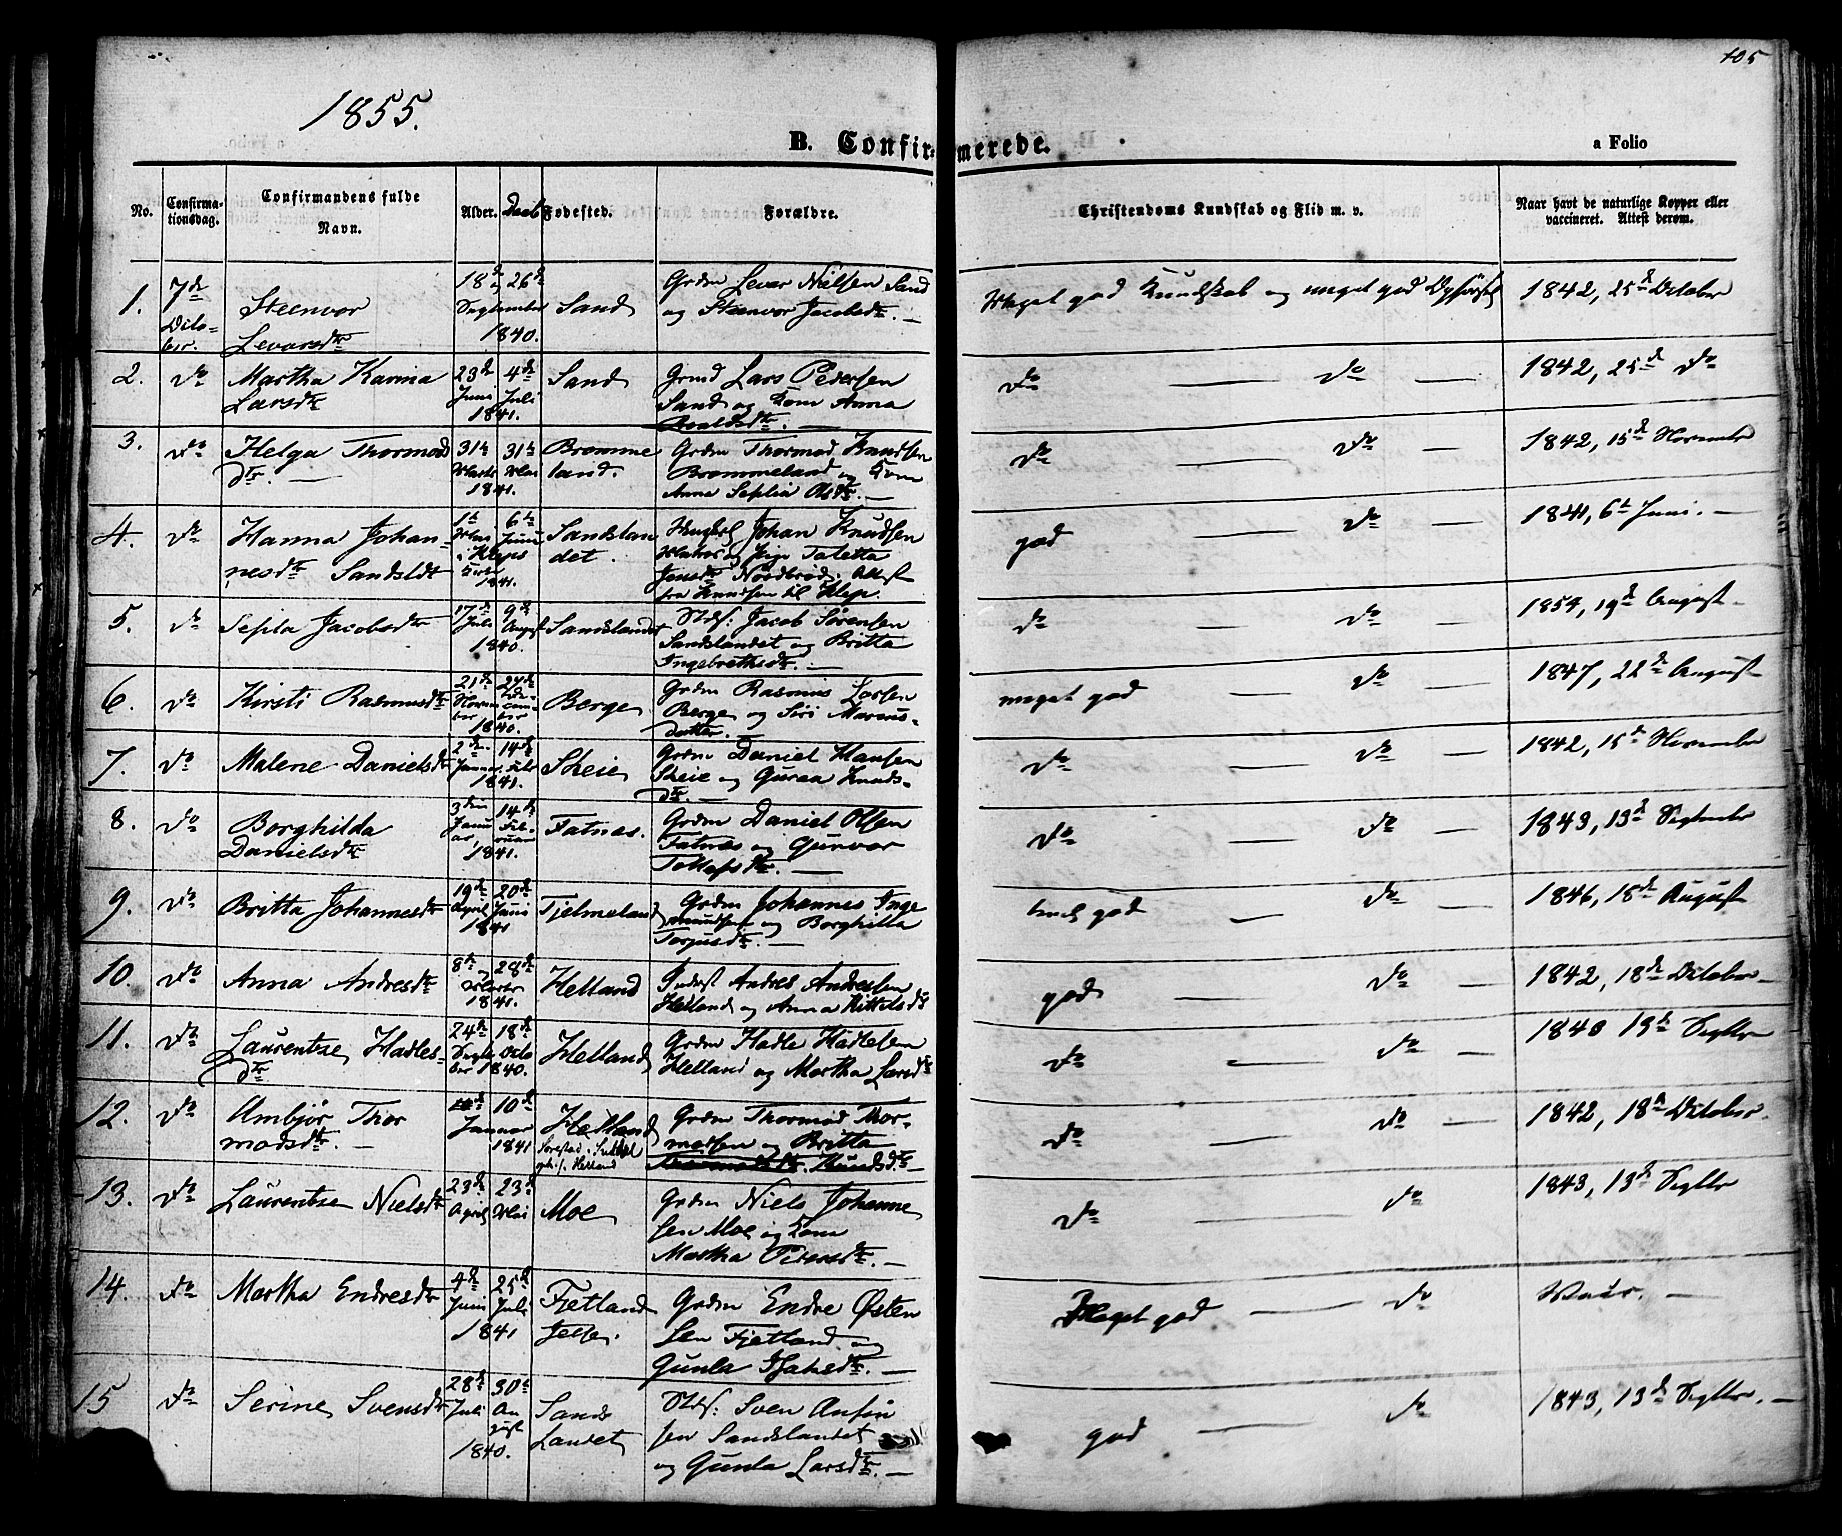 105
1855.
B. Confirmerede.
a Folio
No.
Confirma-
tionsdag.
Confirmandens fulde
Navn.
Alder.
Daab
Fødested.
Forældre.
Christendoms Kundskab og Flid m. v.
Naar havt de naturlige Kopper eller
vaccineret. Attest derom.
1. 7de Octo-ber. Steenvor Levarsdtr 18de og 26de September 1840. Sand Grdm Levar Nielsen Sand og Steenvor Jacobsdtr. — Meget god Kundskab og meget god 1842, 25de October
2. do Martha Karina Larsdtr 23de Juni 4de Juli 1841. Sand Lars Pedersen Sand og Kone Anna do — do — 1842, 25de do
3. do Helga Thormodsdtr. — 31te Marts 31te Mai 1841. Brommeland. Grdm Thormod Knudsen Brommeland og Kone Anna Seplia Olsdtr. — do — do — 1842, 15de Novembr
4. do Hanna Johannesdtr Sandsldt 1te Mai 6te Juni i Klep 1841. Sandslandet. Johan Knudsen Matros og Pige Taletta Jensdtr Attest fra Knudsen til Klep. god do — 1841, 6te Juni. —
5. do Sepla Jacobsdtr 17de Juli 9de August 1840. Sandslandet Jacob Sörensen Sandslandet og Britta Ingebrethsdtr. — do — do — 1854, 19de August —
6. do Kirsti Rasmusdtr 21de November 27de December 1840. Berge Grdm Rasmus Larsen Berge og Siri Marcusdatter. — meget god — do — 1847, 22de August
7. do Malene Danielsdtr 2de Januar 14de Febr 1841. Skeie Grdm Daniel Hansen Skeie og Guraa Knudsdtr. — do — do — 1842, 15de Novembr
8. do Borghilda Danielsdtr 3die Januar 14de Februar 1841. Fatnes. Grdm Daniel Olsen Fatnæs og Gurvor Tollefsdtr. — do — do — 1843, 13de Septembr
9. do Britta Johannesdtr 19de April 20de Juni 1841 Tjelmeland Grdm Johannes Ingemundsen og Borghilla Torjusdtr. — god — do — 1846, 18de August
10. do Anna Andresdtr 8de og 28de Marts 1841. Helland Andres Andresen Helland og Anna Kittelsdtr god — do — 1842, 18de October —
11. do Laurentse Hadlesdtr 24de September 18de Octo 1840. Helland Grdm Hadle Hadlesen Helland og Martha Larsdtr do — do — 1840 19de Septbr
12. do Ambjør Thormodsdtr. — 10de Januar 1841 Helland Helland Grdm Thormod Thormodsen og Britta Knudsdtr. — do — do — 1842, 18de October.
13. do Laurentse Nielsdtr 23de April 23de Mai Moe Grdm Niels Johannesen Moe og Kone Martha Pedersdtr. — do — do 1843, 13de Septbr
14. do Martha Endresdtr 4de Juni 25de Juli 1841 Fjetland Jelse. Grdm Endre Østensen Fjetland og Gunla — Meget god — do — —
15 do Serine Svensdtr 28de Juli 30te August 1840. Sandslandet Sven Anfinsen Sandslandet og Gunla Larsdtr. — god — do 1843, 13de Septbr. —